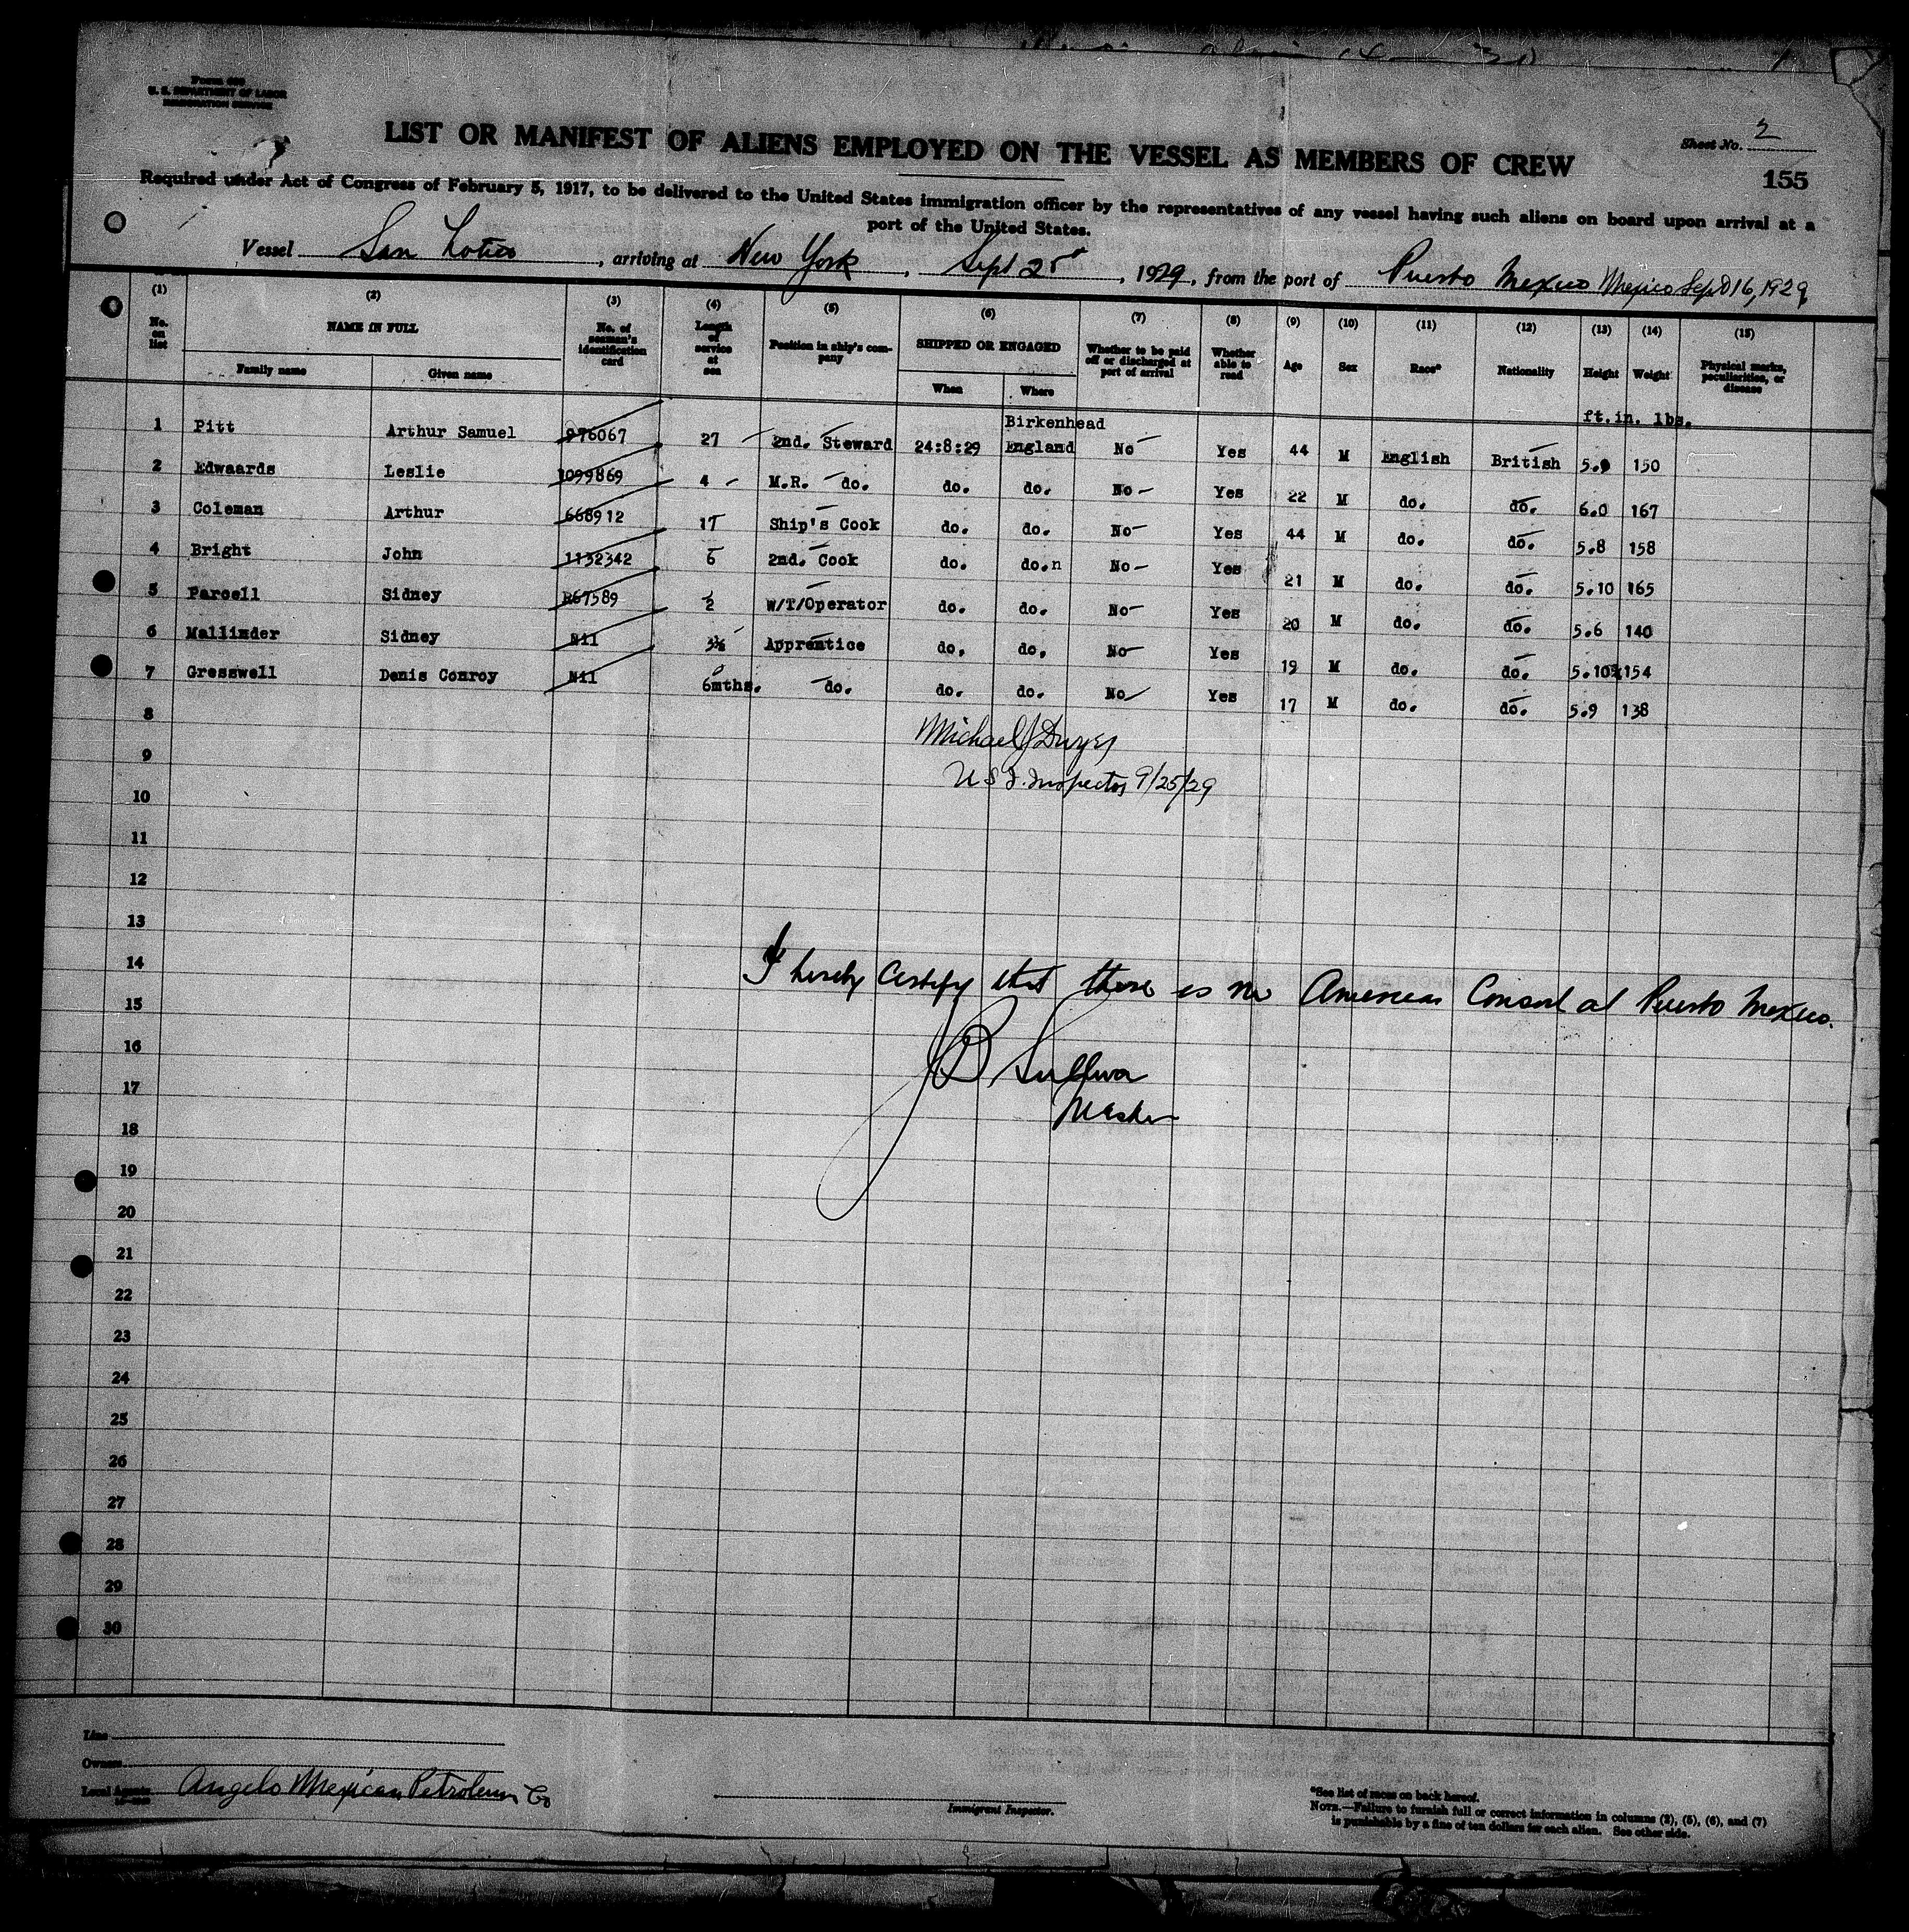 Form 689
U. S. DEPARTMENT OF LABOR
IMMIGRATION SERVICE
Sheet No. 2
LIST OR MANIFEST OF ALIENS EMPLOYED ON THE VESSEL AS MEMBERS OF CREW
155
Required under Act of Congress of February 5, 1917, to be delivered to the United States immigration officer by the representatives of any vessel having such aliens on board upon arrival at a
port of the United States.
Vessel San , arriving at New York , Sept 25 , 1929, from the port of Puerto Mexico Mexico Sept 16, 1929
(1) (2) (3) (4) (5) (6) (7) (8) (9) (10) (11) (12) (13) (14) (15)
No. on list NAME IN FULL No. of seaman's identification card Length of service at sea Position in ship's company SHIPPED OR ENGAGED Whether to be paid off or discharged at port of arrival Whether able to read Age Sex Race* Nationality Height Weight Physical marks, peculiarities, or disease
Family name Given name When Where
ft.in. lbs.
Birkenhead
1 Pitt Arthur Samuel 976067 27 2nd. Steward 24:8:29 England No Yes 44 M English British 5.9 150
2 Edwaards Leslie 1099869 4 M.R. do. do. do. No Yes 22 M do. do. 6.0 167
3 Coleman Arthur 668912 17 Ship's Cook do. do. No Yes 44 M do. do. 5.8 158
4 Bright John 1132342 5 2nd. Cook do. do.n No Yes 21 M do. do. 5.10 165
5 Parcell Sidney R67589 ½ W/T/Operator do. do. No Yes 20 M do. do. 5.6 140
6 Mallinder Sidney Nil 3½ Apprentice do. do. No Yes 19 M do. do. 5.10½ 154
7 Gresswell Denis Conroy Nil 6mths. do. do. do. No Yes 17 M do. do. 5.9 138
8
Michael J Dwyer
9
U S I. Inspector 9/25/29
10
11
12
13
14
I hereby certify that there is no American Consul at Puerto Mexico.
15
16
Sullivan
17
Master
18
19
20
21
22
23
24
25
26
27
28
29
30
Line
Owners
Local Agents Angelo Mexican Petroleum Co
Immigrant Inspector.
*See list of races on back hereof.
NOTE.—Failure to furnish full or correct information in columns (2), (5), (6), and (7)
is punishable by a fine of ten dollars for each alien. See other side.